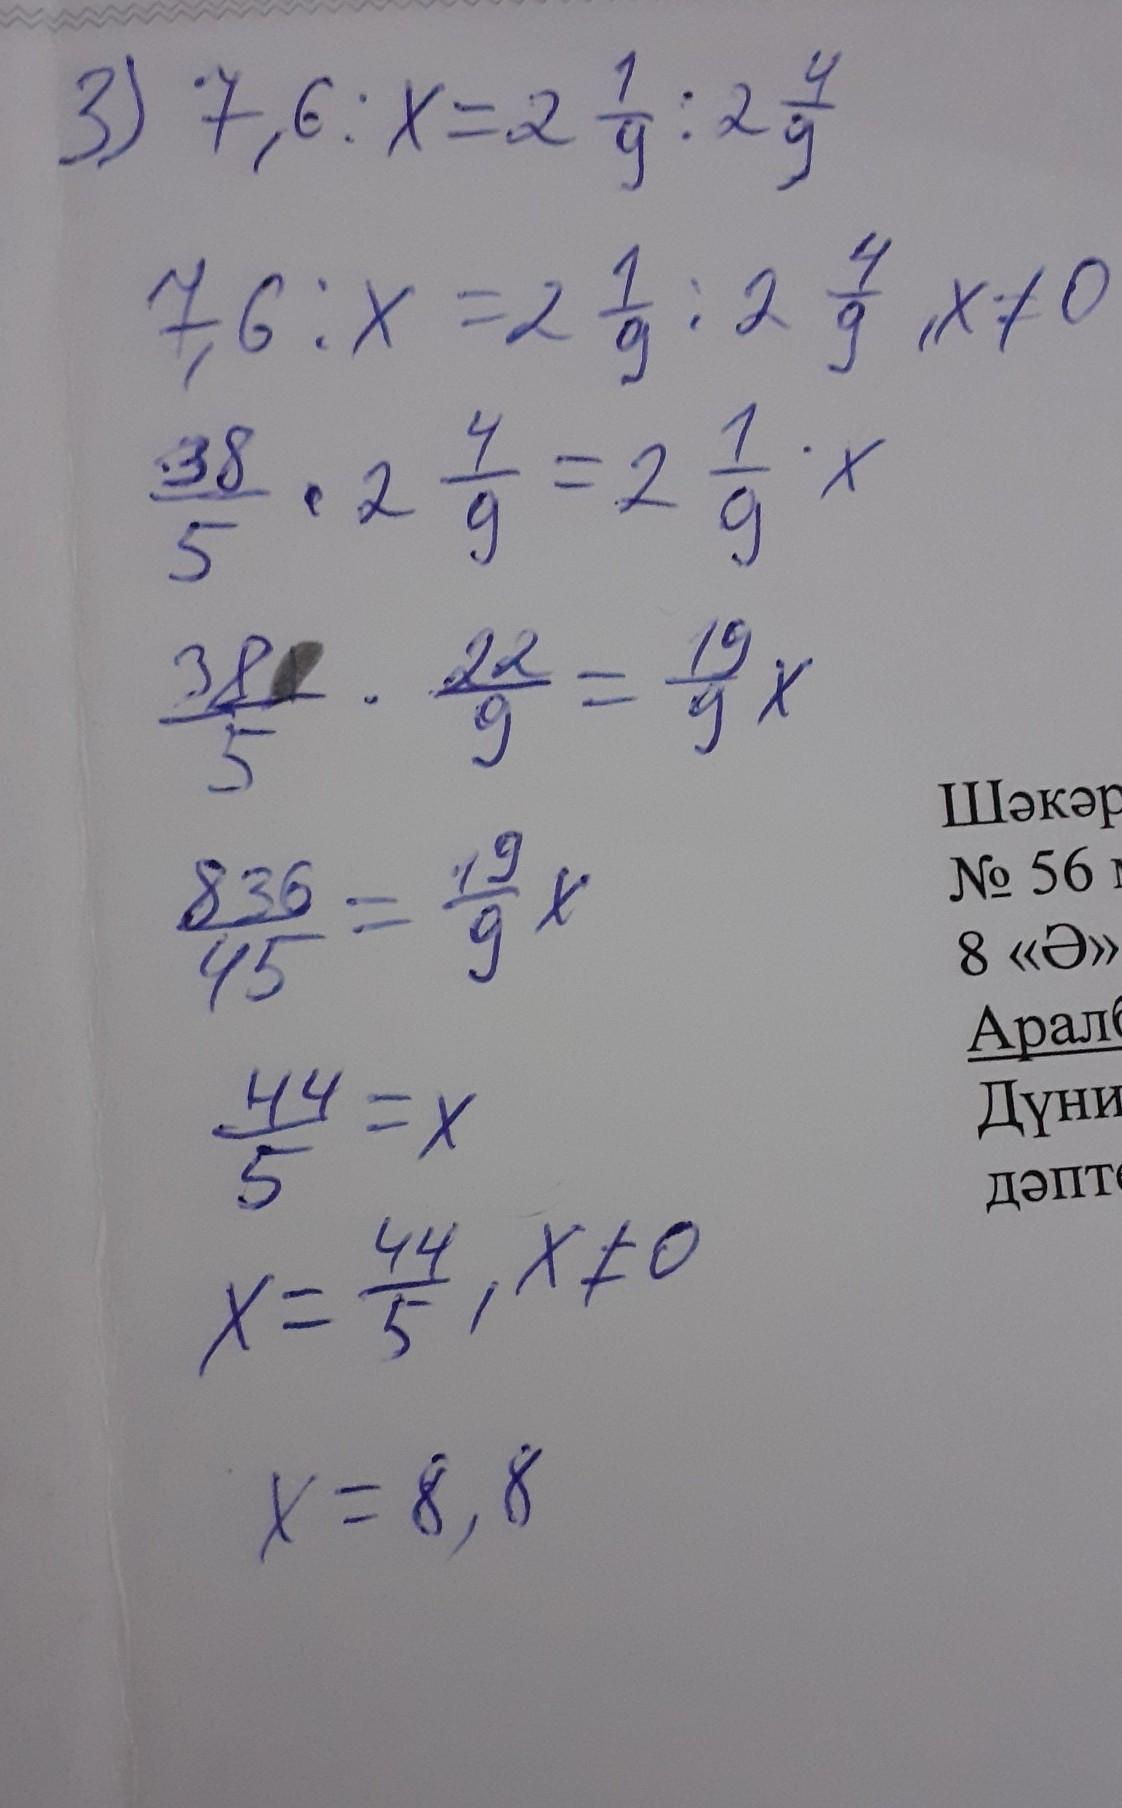 3) 7,6 : x = 2 1/9 : 2 4/9
7,6 : x = 2 1/9 : 2 4/9 , x ≠ 0
38/5 · 2 4/9 = 2 1/9 · x
38/5 · 22/9 = 19/9 x
836/45 = 19/9 x
44/5 = x
x = 44/5 , x ≠ 0
x = 8,8
Шәкәр
№ 56
8 «Ә»
Аралб
Дүни
дәпте